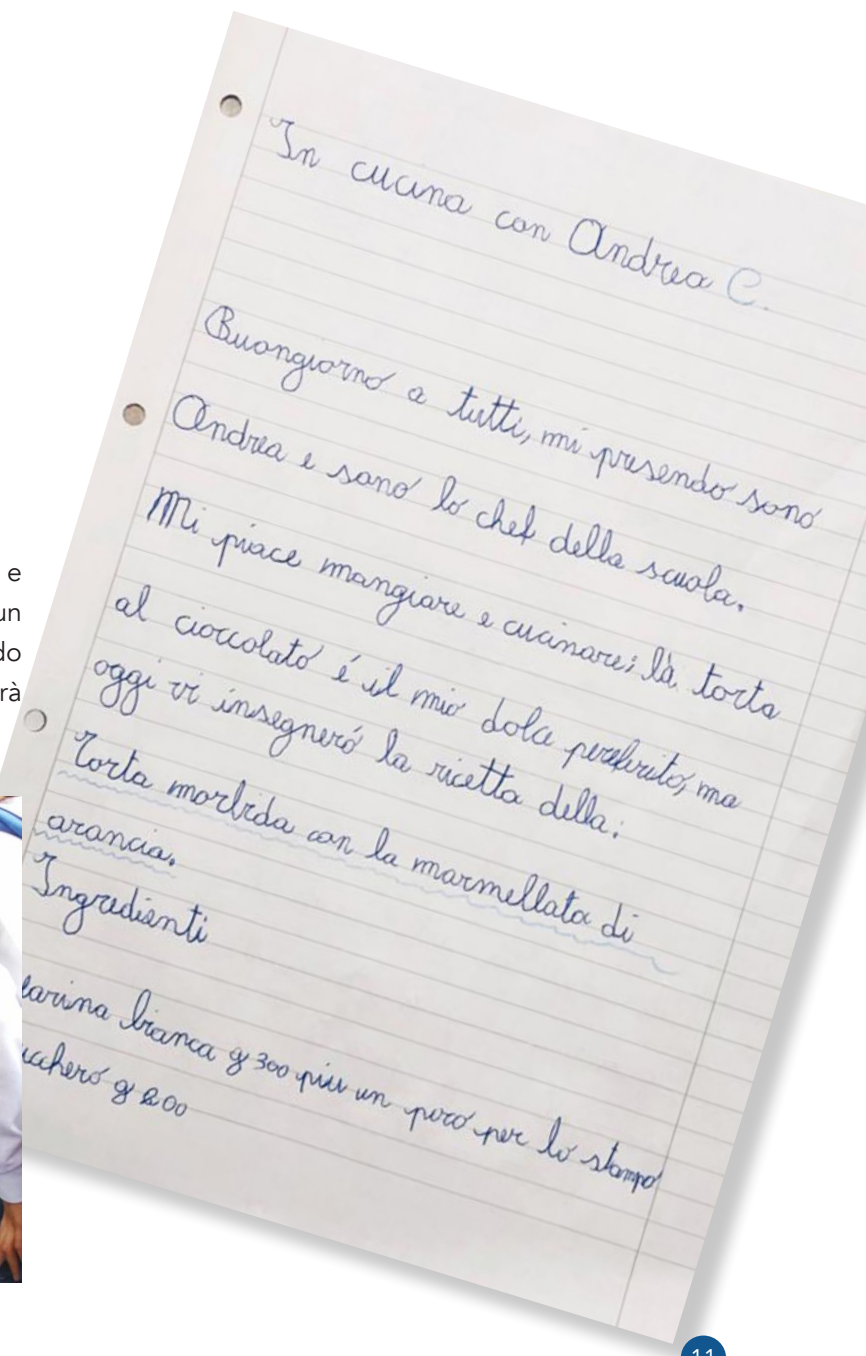 In cucina con Andrea C.
Buongiorno a tutti, mi presendo sono
Andrea e sono lo chef della scuola.
Mi piace mangiare e cucinare; la torta
al cioccolato é il mio dolce
oggi vi insegneró la ricetta della:
Torta morbida con la marmellata di
arancia.
Ingredienti
farina bianca g 300 più un poco per lo stampo
ucchero g 200
e
un
do
rà
11